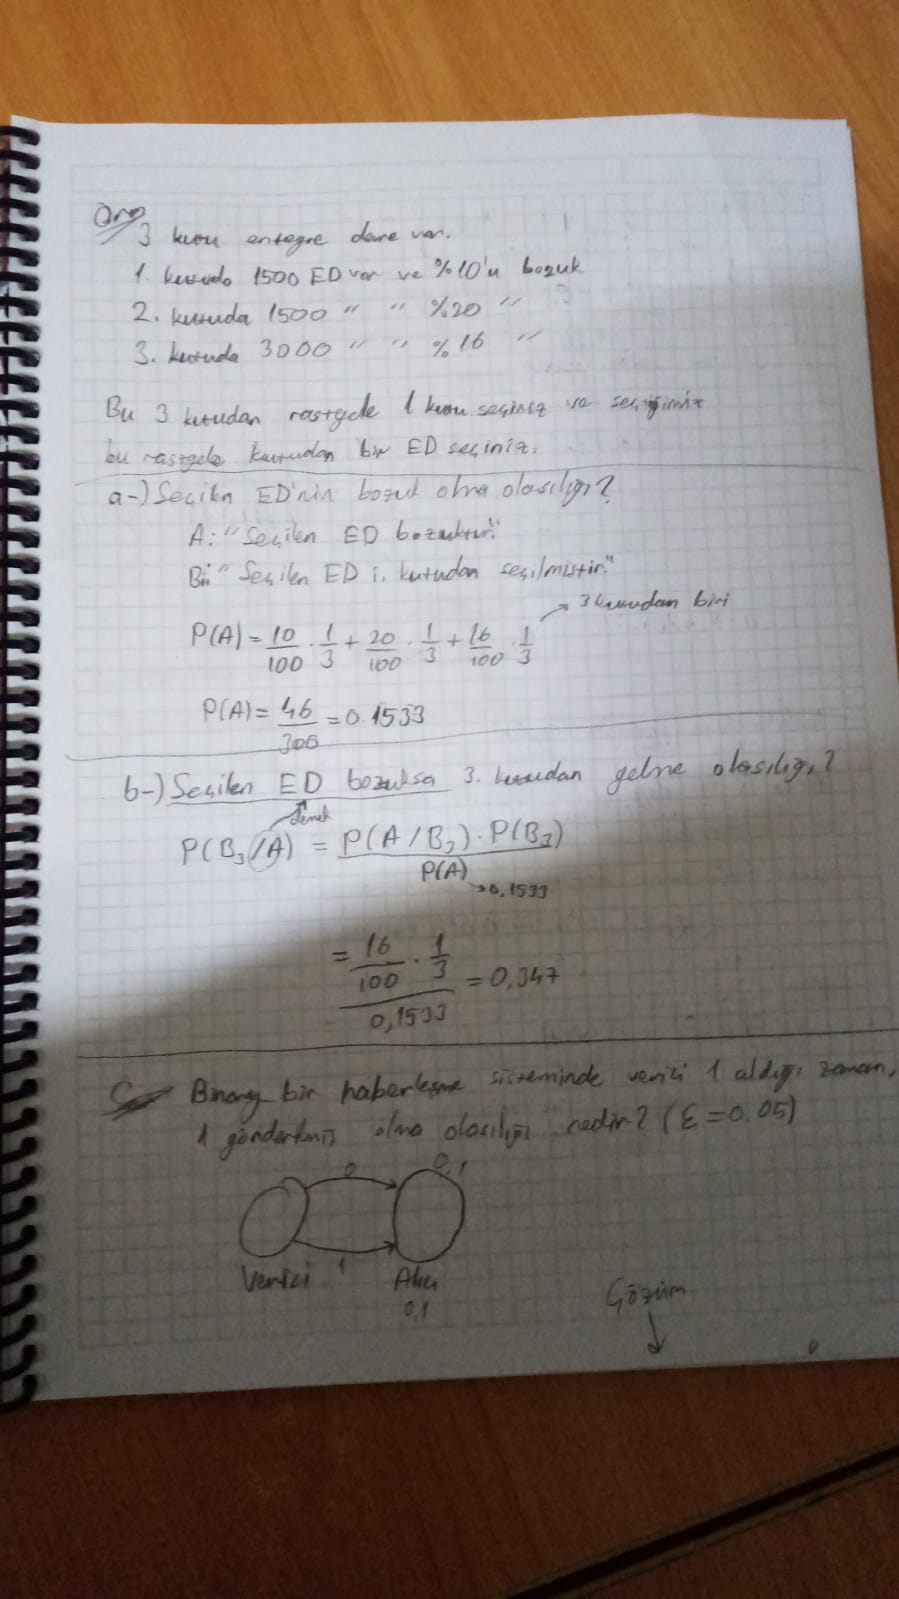 Örn
3 kutu entegre devre var.
1. kutuda 1500 ED var ve %10'u bozuk
2. kutuda 1500 " " %20 "
3. kutuda 3000 " " %16 "
Bu 3 kutudan rastgele 1 kutu seçiniz ve seçtiğimiz
bu rastgele kutudan bir ED seçiniz.
a-) Seçilen ED'nin bozuk olma olasılığı?
A: "Seçilen ED bozuktur."
Bi: "Seçilen ED i. kutudan seçilmiştir."
→ 3 kutudan biri
P(A) = 10/100 · 1/3 + 20/100 · 1/3 + 16/100 · 1/3
P(A) = 46/300 = 0.1533
b-) Seçilen ED bozuksa 3. kutudan gelme olasılığı?
demek
P(B₃/A) = P(A/B₃) · P(B₃) / P(A)
→ 0,1533
= 16/100 · 1/3 / 0,1533 = 0,347
Binary bir haberleşme sisteminde verici 1 aldığı zaman,
1 gönderilmiş olma olasılığı nedir? (ε = 0.05)
0 0,1
Verici 1 Alıcı
0,1
Çözüm
↓